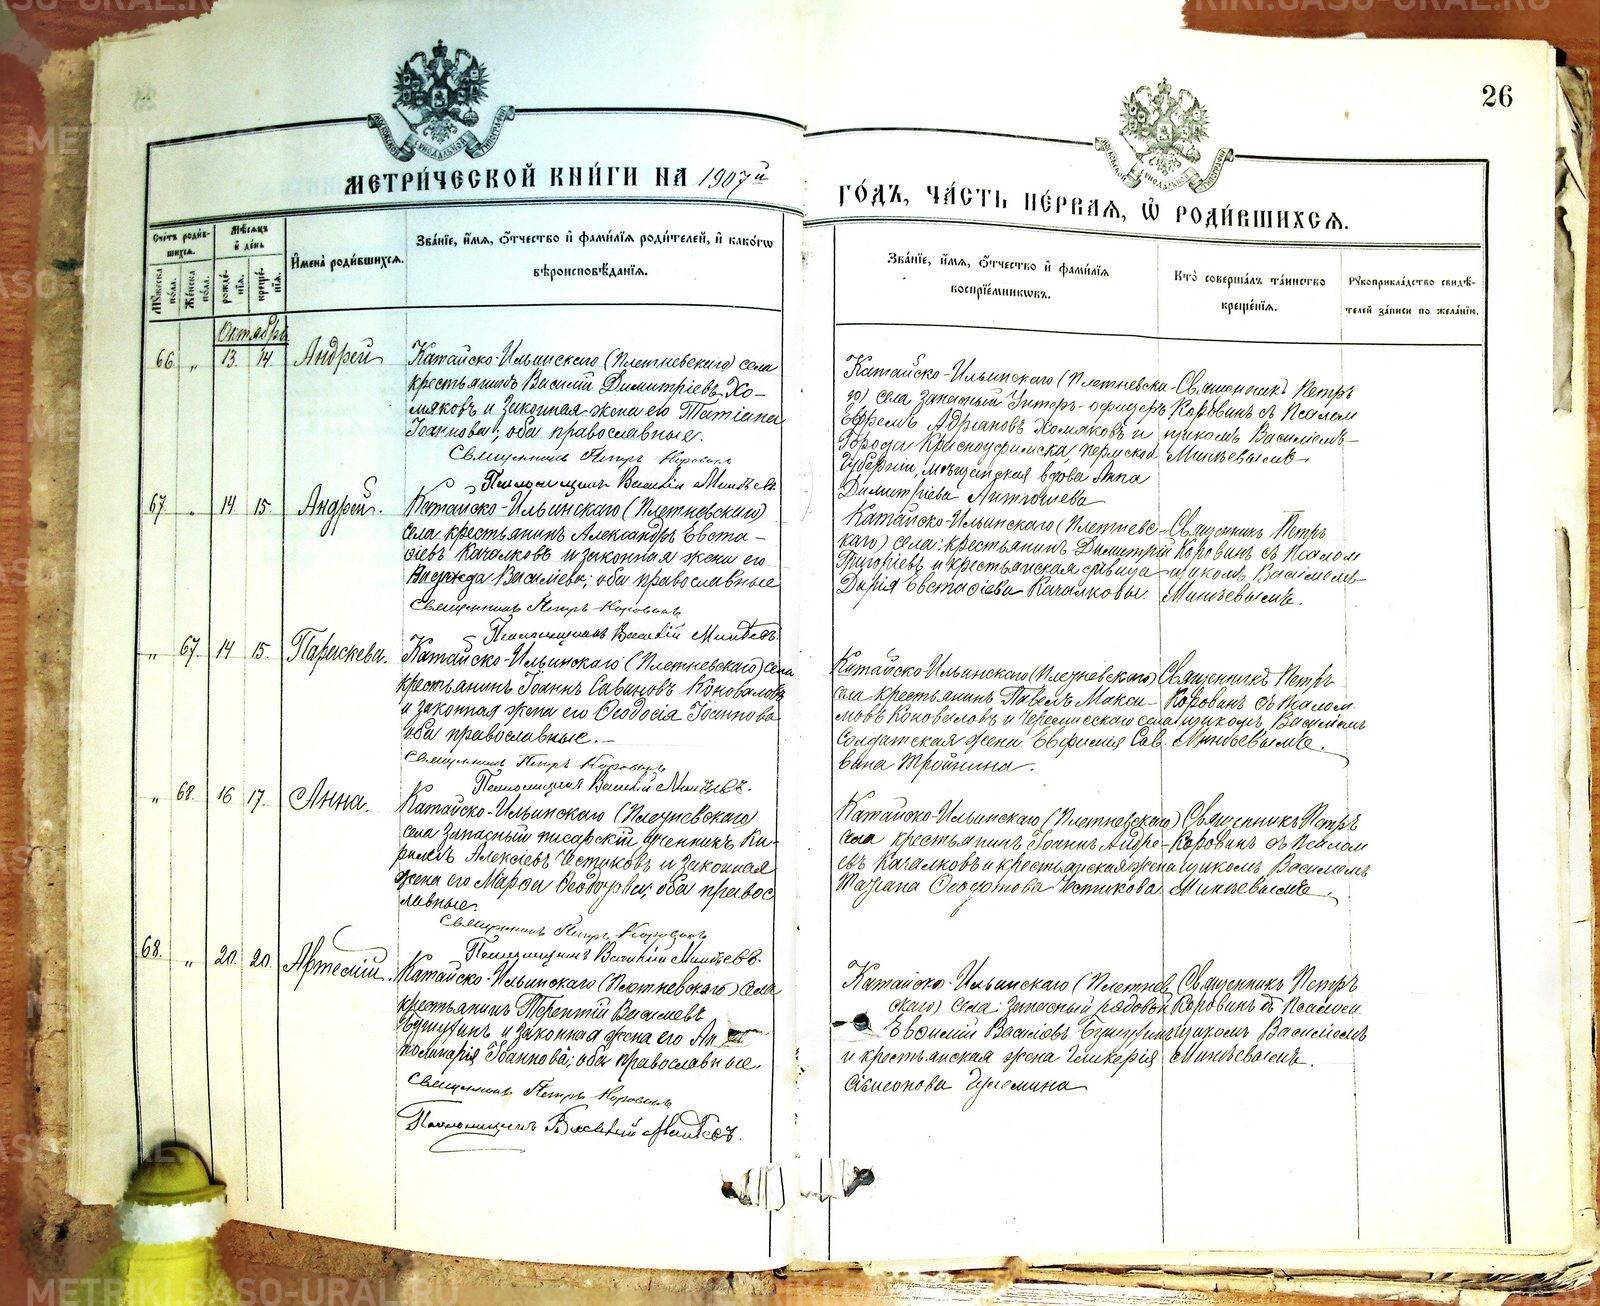 26
МЕТРИ́ЧЕСКОЙ КНИ́ГИ НА 1907й
ГО́ДЪ, ЧА́СТЬ ПЕ́РВАЯ, Ѡ҆ РОДИ́ВШИХСЯ.
Сче́тъ роди́в-
шихся.
Мꙋ́жеска по́ла.
Же́нска по́ла.
Мѣ́сяцъ
и҆ де́нь
рожде́-
нїя.
креще́-
нїя.
И҆мена̀ роди́вшихся.
Зва́нїе, и҆́мя, ѻ҆́тчество и҆ фами́лїя роди́телей, и҆ како́гѡ
вѣроисповѣ́данїя.
Зва́нїе, и҆́мя, ѻ҆́тчество и҆ фами́лїя
воспрїе́мникѡвъ.
Кто̀ соверша́лъ та́инство
креще́нїя.
Рꙋкоприкла́дство свидѣ́-
телей за́писи по жела́нїю.
Октябрь
66 „ 13 14 Андрей
Катайско-Ильинскаго (Плетневскаго) села
крестьянинъ Василій Димитріевъ Хо-
мяковъ и законная жена его Татіана
Іоаннова; оба православные.
Священникъ Петръ Коровинъ
Псаломщикъ Василій Минѣевъ
Катайско-Ильинскаго (Плетневска-
го) села запасный Унтеръ-офицеръ
Ефремъ Адріановъ Хомяковъ и
Города Красноуфимска Пермской
Губерніи, мѣщанская вдова Анна
Димитріева
Священникъ Петръ
Коровинъ съ Псалом
щикомъ Василіемъ
Минѣевымъ
67 „ 14 15 Андрей.
Катайско-Ильинскаго (Плетневскаго)
села крестьянинъ Александръ Евста-
фіевъ Качалковъ и законная жена его
Надежда Васильева; оба православные
Священникъ Петръ Коровинъ
Псаломщикъ Василій Минѣевъ.
Катайско-Ильинскаго (Плетневс-
каго) села: крестьянинъ Димитрій
Григоріевъ и крестьянская дѣвица
Дарія Евстафіева Качалковы
Священникъ Петръ
Коровинъ съ Псалом
щикомъ Василіемъ
Минѣевымъ.
„ 67. 14 15. Параскева.
Катайско-Ильинскаго (Плетневскаго) села
крестьянинъ Іоаннъ Савиновъ Коноваловъ
и законная жена его Ѳеодосія Іоаннова
оба православные.
Священникъ Петръ Коровинъ
Псаломщикъ Василій Минѣевъ.
Катайско-Ильинскаго (Плетневскаго)
села крестьянинъ Павелъ Макси-
мовъ Коноваловъ и Черемисскаго села
солдатская жена Евфимія Сав
вина
Священникъ Петръ
Коровинъ съ Псалом
щикомъ Василіемъ
Минѣевымъ.
„ 68. 16 17. Анна.
Катайско-Ильинскаго (Плетневскаго)
села запасный писарскій ученикъ Ки-
риллъ Алексіевъ Чстяковъ и законная
жена его Марѳа Ѳеодорова; оба правос
лавные.
Священникъ Петръ Коровинъ
Псаломщикъ Василій Минѣевъ.
Катайско-Ильинскаго (Плетневскаго)
села крестьянинъ Іоаннъ Андре-
евъ Качалковъ и крестьянская жена
Священникъ Петръ
Коровинъ съ Псалом
щикомъ Василіемъ
Минѣевымъ.
68. „ 20. 20. Артемій.
Катайско-Ильинскаго (Плетневскаго) села
крестьянинъ Терентій Васильевъ
и законная жена его Ап
полинарія Іоаннова; оба православные.
Священникъ Петръ Коровинъ
Псаломщикъ Василій Минѣевъ.
Катайско-Ильинскаго (Плетнев
скаго) села: запасный рядовой
Евфимій Василіевъ
и крестьянская жена Гликерія
Сімеонова
Священникъ Петръ
Коровинъ съ Псалом
щикомъ Василіемъ
Минѣевымъ.
METRIKI.GASO-URAL.RU